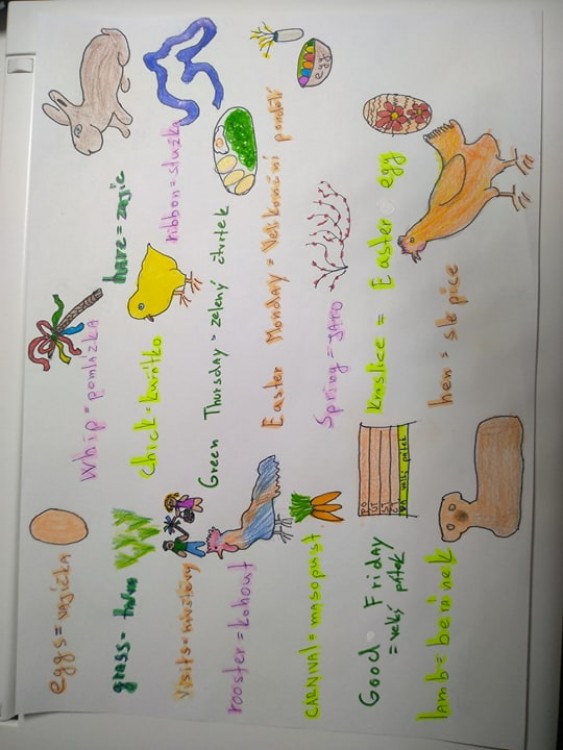 eggs = vajíčka
Whip = pomlázka
hare = zajíc
grass = tráva
chick = kuřátko
ribbon = stužka
Visits = návštěvy
Green Thursday = zelený čtvrtek
rooster = kohout
Easter Monday = Velikonoční pondělí
egg
CARNIVAL = masopust
Spring = JARO
Good Friday
= velký pátek
PÁ velký pátek
Kraslice = Easter egg
lamb = beránek
hen = slepice